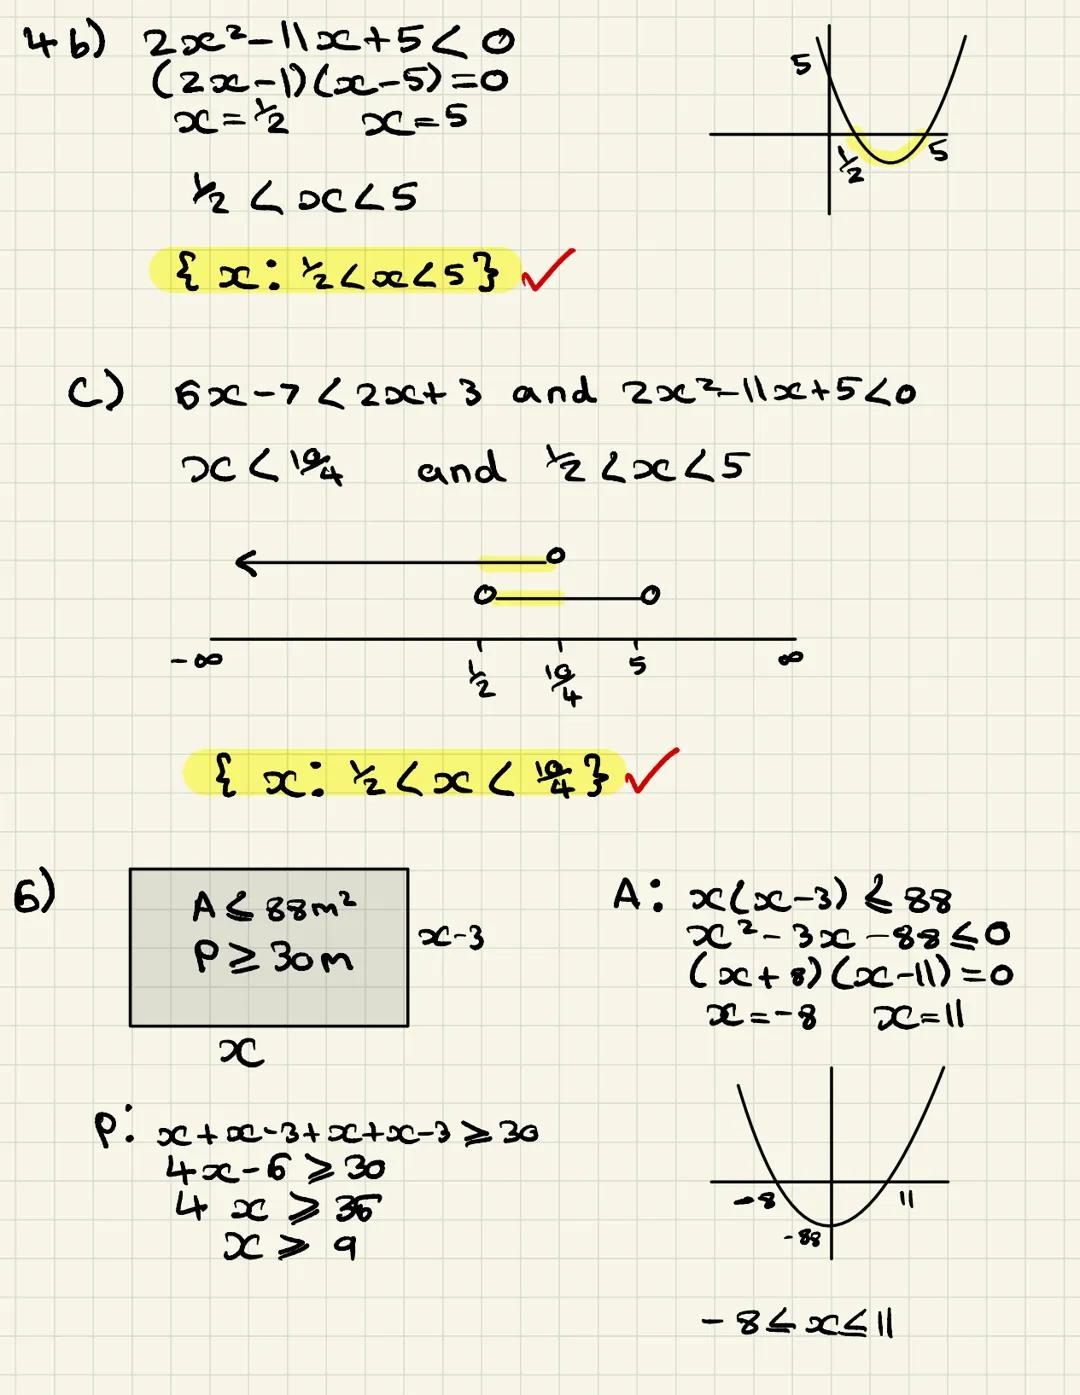 4 b) 2x²-11x+5<0
(2x-1)(x-5)=0
x=½ x=5
5
½ 5
½<x<5
{x: ½<x<5} ✓
c) 6x-7<2x+3 and 2x²-11x+5<0
x<10/4 and ½<x<5
-∞ ½ 10/4 5 ∞
{x: ½<x<10/4} ✓
6) A≤88m²
P≥30m
x-3
x
A: x(x-3)≤88
x²-3x-88≤0
(x+8)(x-11)=0
x=-8 x=11
P: x+x-3+x+x-3≥30
4x-6≥30
4x≥36
x≥9
-8 11
-88
-8≤x≤11